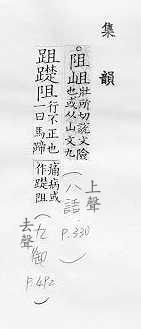 集韻
。阻岨壯所切說文險也或从山文九
上聲
(八語 P.330
跙𨆪阻行不正也一曰馬蹄痛病或作踶阻
去聲
(九御 P.492)